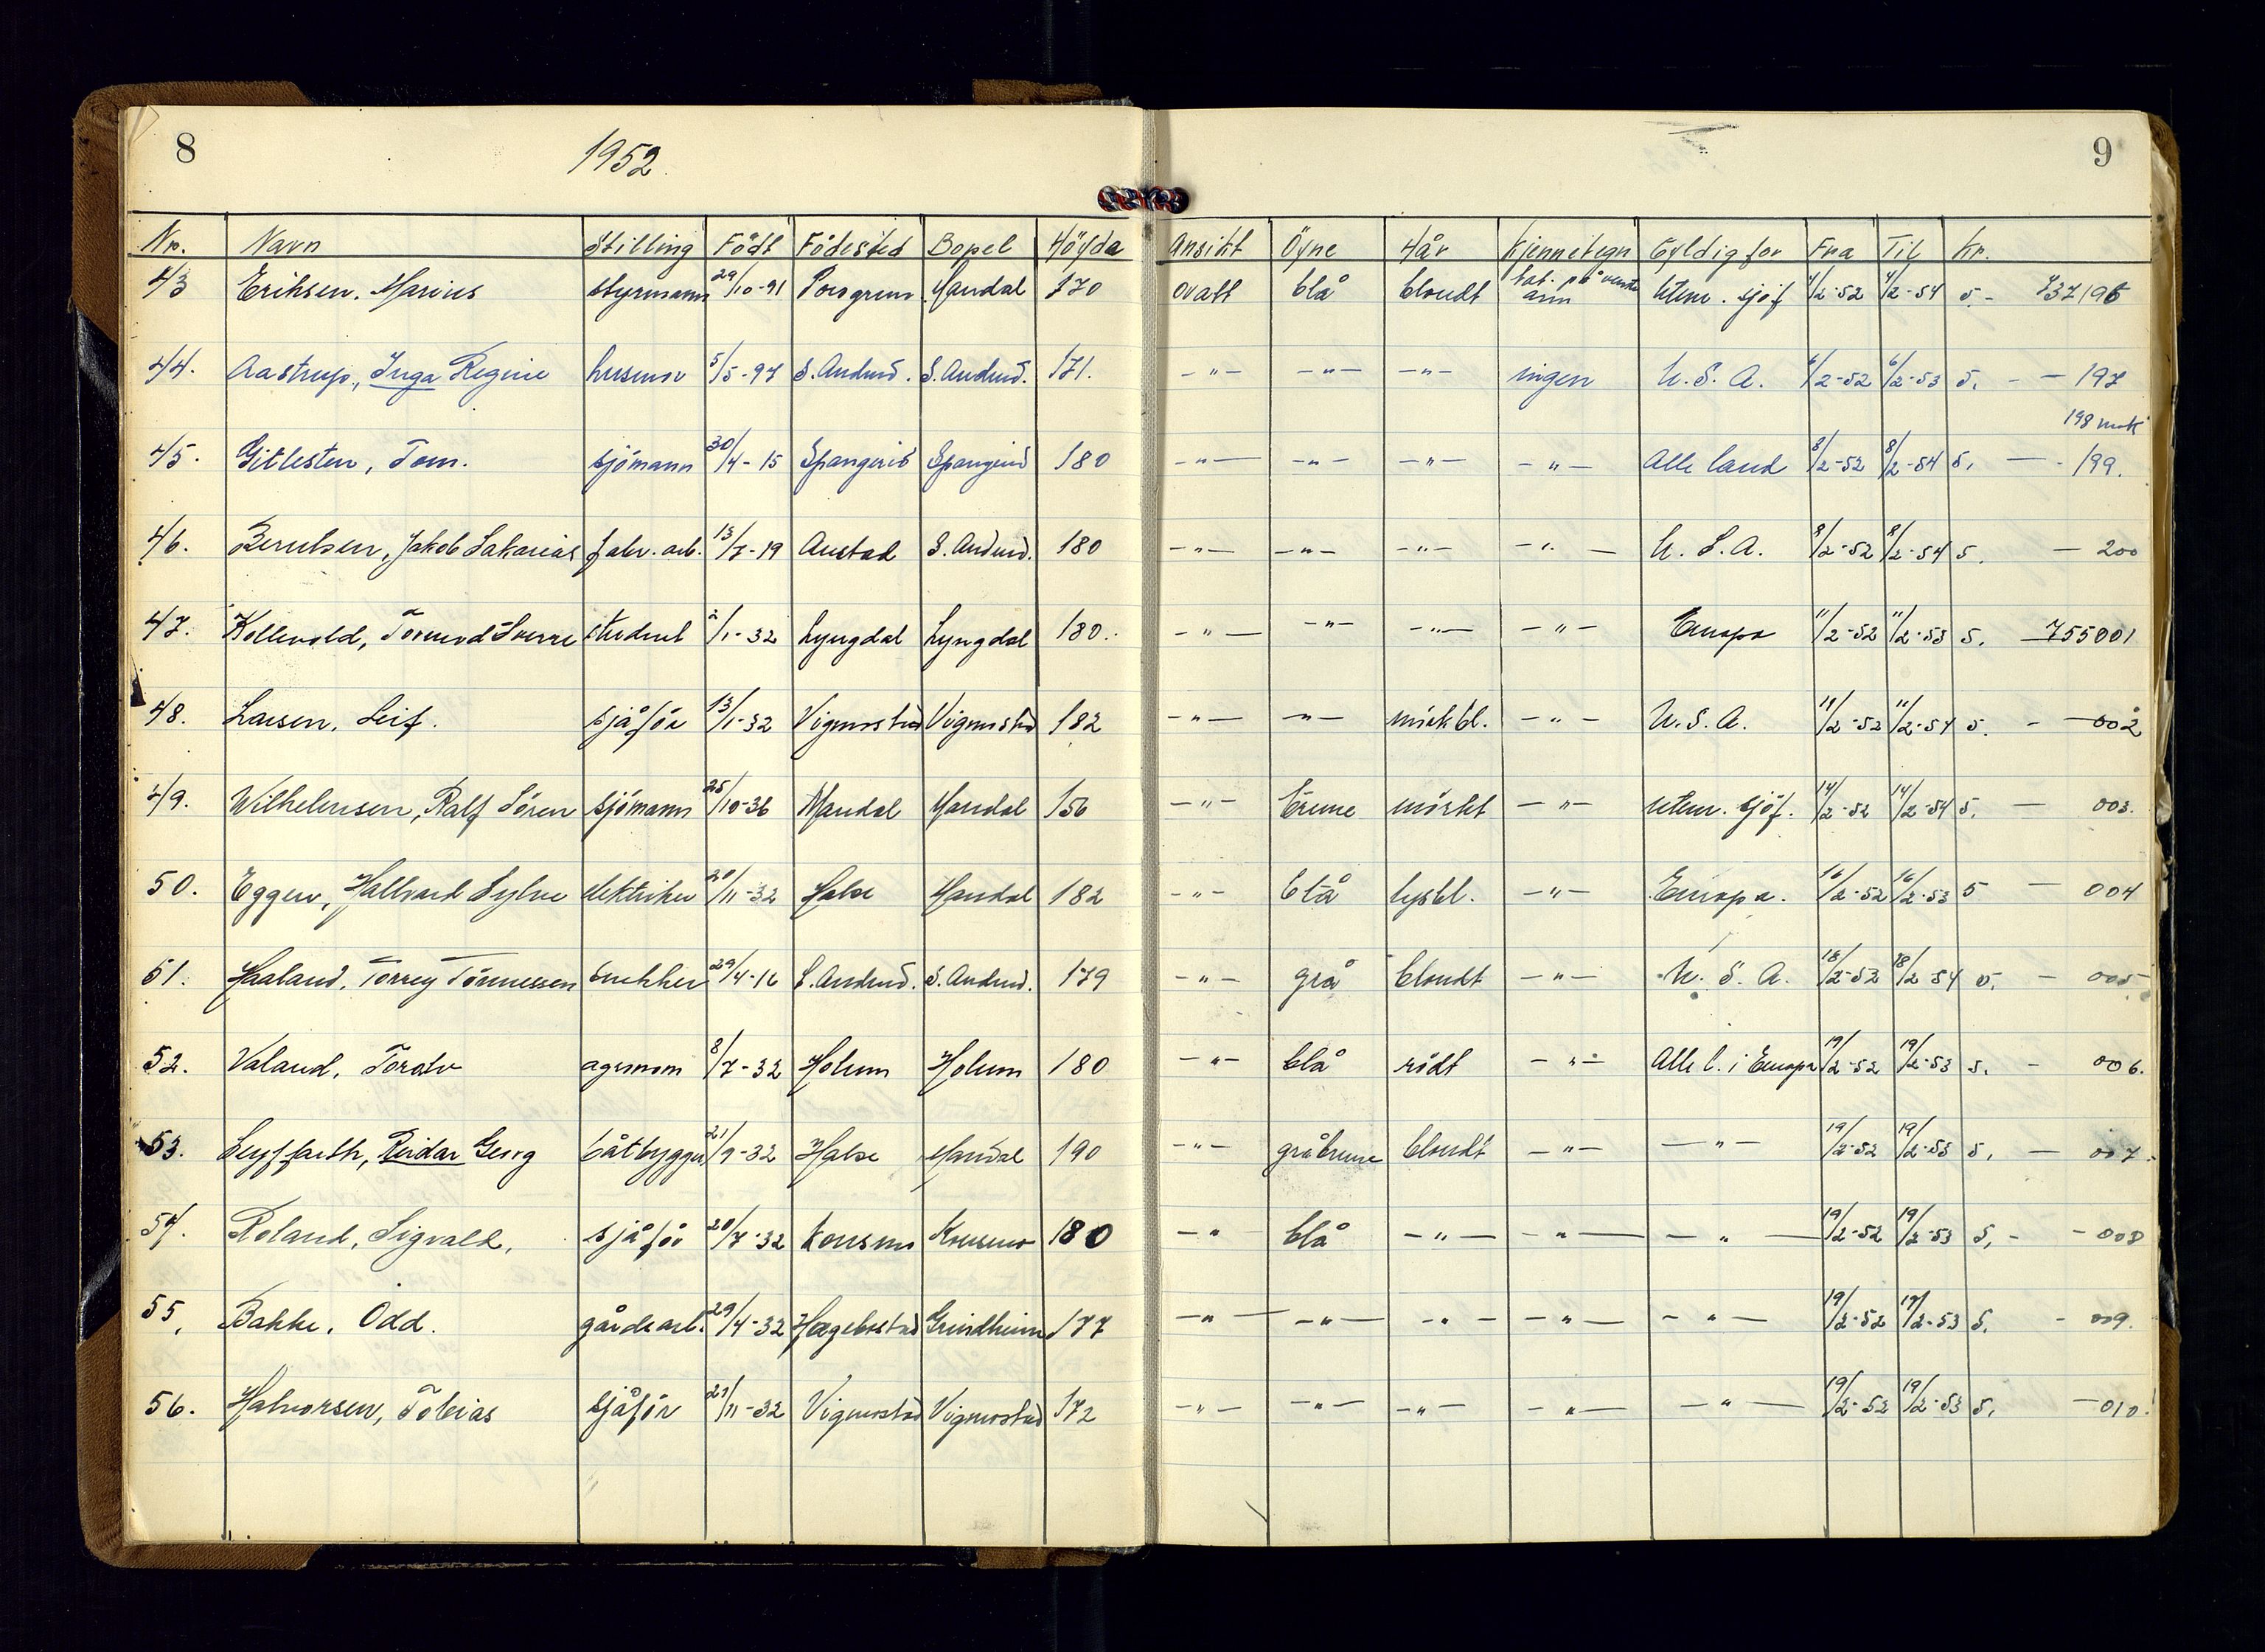 8
1952
9
Nr. Navn Stilling Födt Födested Bopel Höyde Ansikt Öyne Hår Kjennetegn Gyldig for Fra Til Kr.
43 Eriksen, Marius styrmann 29/10-91 Porsgrunn Mandal 170 ovalt blå blondt tat. på venstre arm utenr. sjöf 4/2-52 4/2-54 5.- 737196
44. Aastrup, Inga Regine husmor 5/5-97 S. Audned. S. Audned. 171. -"- -"- -"- ingen U.S.A. 6/2-52 6/2-53 5. - - 197
198 mak
45. Gitlesten, Tom. sjömann 30/4-15 Spangereid Spangereid 180 -"- -"- -"- -"- Alle land 8/2-52 8/2-54 5. - - 199.
46. Berntsen, Jakob Sakarias fabr. arb. 13/7-19 Austad S. Audned. 180 -"- -"- -"- -"- U.S.A. 8/2-52 8/2-54 5. - 200
47. Kollevold, Tormod Sverre student 2/1-32 Lyngdal Lyngdal 180. -"- -"- -"- -"- Europa 11/2-52 11/2-53 5. - 755001
48. Larsen, Leif. sjåför 13/1-32 Vigmostad Vigmostad 182 -"- -"- mörkbl. -"- U.S.A. 11/2-52 11/2-54 5. - - 002
49. Wilhelmsen, Ralf Sören sjömann 25/10-36 Mandal Mandal 156 -"- brune mörkt -"- utenr. sjöf. 14/2-52 14/2-54 5. - 003.
50. Eggen, Hallvard Sylve elektriker 20/11-32 Halse Mandal 182 -"- blå lysbl. -"- Europa. 16/2-52 16/2-53 5 - 004
51. Haaland, Torrey Tönnessen snekker 29/4-16 S. Audned. S. Audned. 179 -"- grå blondt -"- U.S.A. 18/2-52 18/2-54 5. - 005
52. Valand, Toralv agronom 8/7-32 Holum Holum 180 -"- blå rödt -"- Alle l. i Europa 19/2-52 19/2-53 5. - 006.
53. Seyffarth, Reidar Georg båtbygger 21/9-32 Halse Mandal 190 -"- gråbrune blondt -"- -"- 19/2-52 19/2-53 5. - 007.
54. Roland, Sigvald, sjåför 20/7-32 Konsmo Konsmo 180 -" blå -"- -"- -"- 19/2-52 19/2-53 5. - - 008
55. Bakke, Odd. gårdsarb. 29/4-32 Hægebostad Grindheim 177 -"- -"- -"- -"- -"- 19/2-52 19/2-53 5. - 009.
56. Halvorsen, Tobias sjåför 21/11-32 Vigmostad Vigmostad 172 -"- -"- -"- -"- -"- 19/2-52 19/2-53 5. - 010.